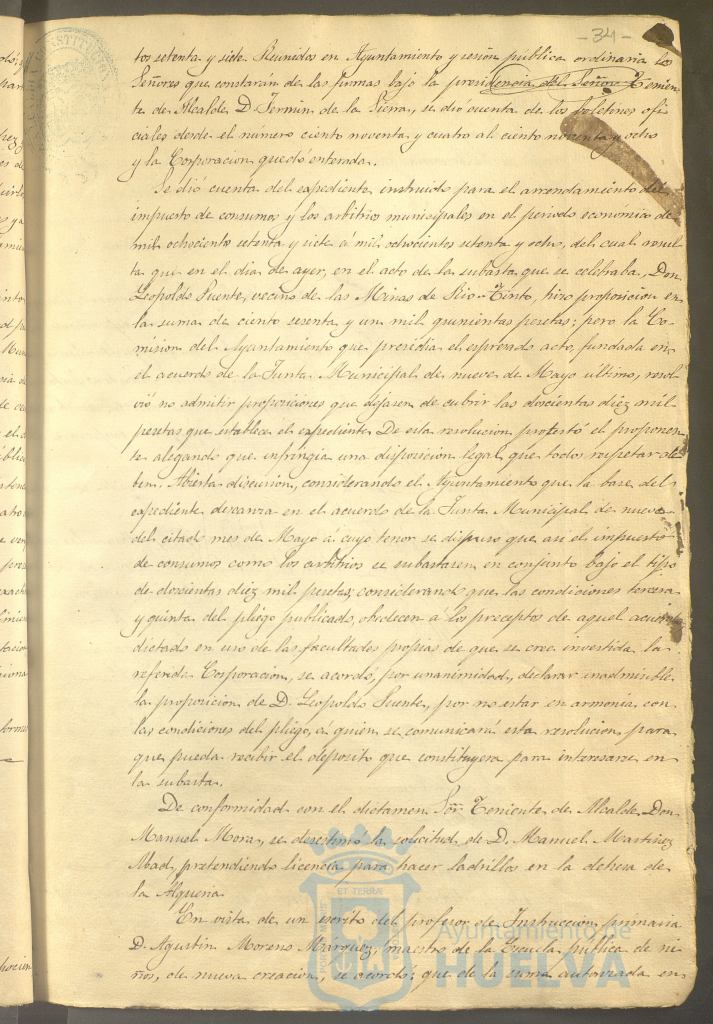 -34-
tos setenta y siete Reunidos en Ayuntamiento y sesion pública ordinaria los
Señores que constarán de las firmas bajo la presidencia del Señor Tenien
te de Alcalde D. Fermin de la Sierra, se dió cuenta de los Boletines ofi
ciales desde el número ciento noventa y cuatro al ciento noventa y ocho
y la Corporacion quedó enterada.
Se dió cuenta del espediente instruido para el arrendamiento del
impuesto de consumos y los arbitrios municipales en el periodo económico de
mil ochocientos setenta y siete á mil ochocientos setenta y ocho, del cual resul
ta que en el dia de ayer, en el acto de la subasta que se celebraba, Don
Leopoldo Puente, vecino de las Minas de Rio-Tinto, hizo proposicion en
la suma de ciento sesenta y un mil quinientas pesetas; pero la Co-
mision del Ayuntamiento que presidia el espresado acto, fundada en
el acuerdo de la Junta Municipal de nueve de Mayo ultimo, resol-
vió no admitir proposiciones que dejasen de cubrir las doscientas diez mil
pesetas que establece el espediente. De esta resolucion protestó el proponen
te alegando que infringia una disposicion legal que todos respetar de
ben. Abierta discusion, considerando el Ayuntamiento que la base del
espediente descansa en el acuerdo de la Junta Municipal de nueve
del citado mes de Mayo á cuyo tenor se dispuso que asi el impuesto
de consumos como los arbitrios se subastasen en conjunto bajo el tipo
de doscientas diez mil pesetas; considerando que las condiciones tercera
y quinta del pliego publicado, obedecen á los preceptos de aquel acuerdo
dictado en uso de las facultades propias de que se cree investida la
referida Corporacion, se acordó, por unanimidad, declarar inadmisible
la proposicion de D. Leopoldo Puente, por no estar en armonia con
las condiciones del pliego, á quien se comunicará esta resolucion para
que pueda recibir el deposito que constituyera para interesarse en
la subasta.
De conformidad con el dictamen Sor. Teniente de Alcalde Don
Manuel Mora, se desestimó la solicitud de D. Manuel Martinez
Abad, pretendiendo licencia para hacer ladrillos en la dehesa de
la Alqueria.
En vista de un escrito del profesor de Instruccion primaria
D. Agustin Moreno Marquez, maestro de la Escuela publica de ni-
ños, de nueva creacion, se acordó: que de la suma autorizada en
Ayuntamiento de
HUELVA